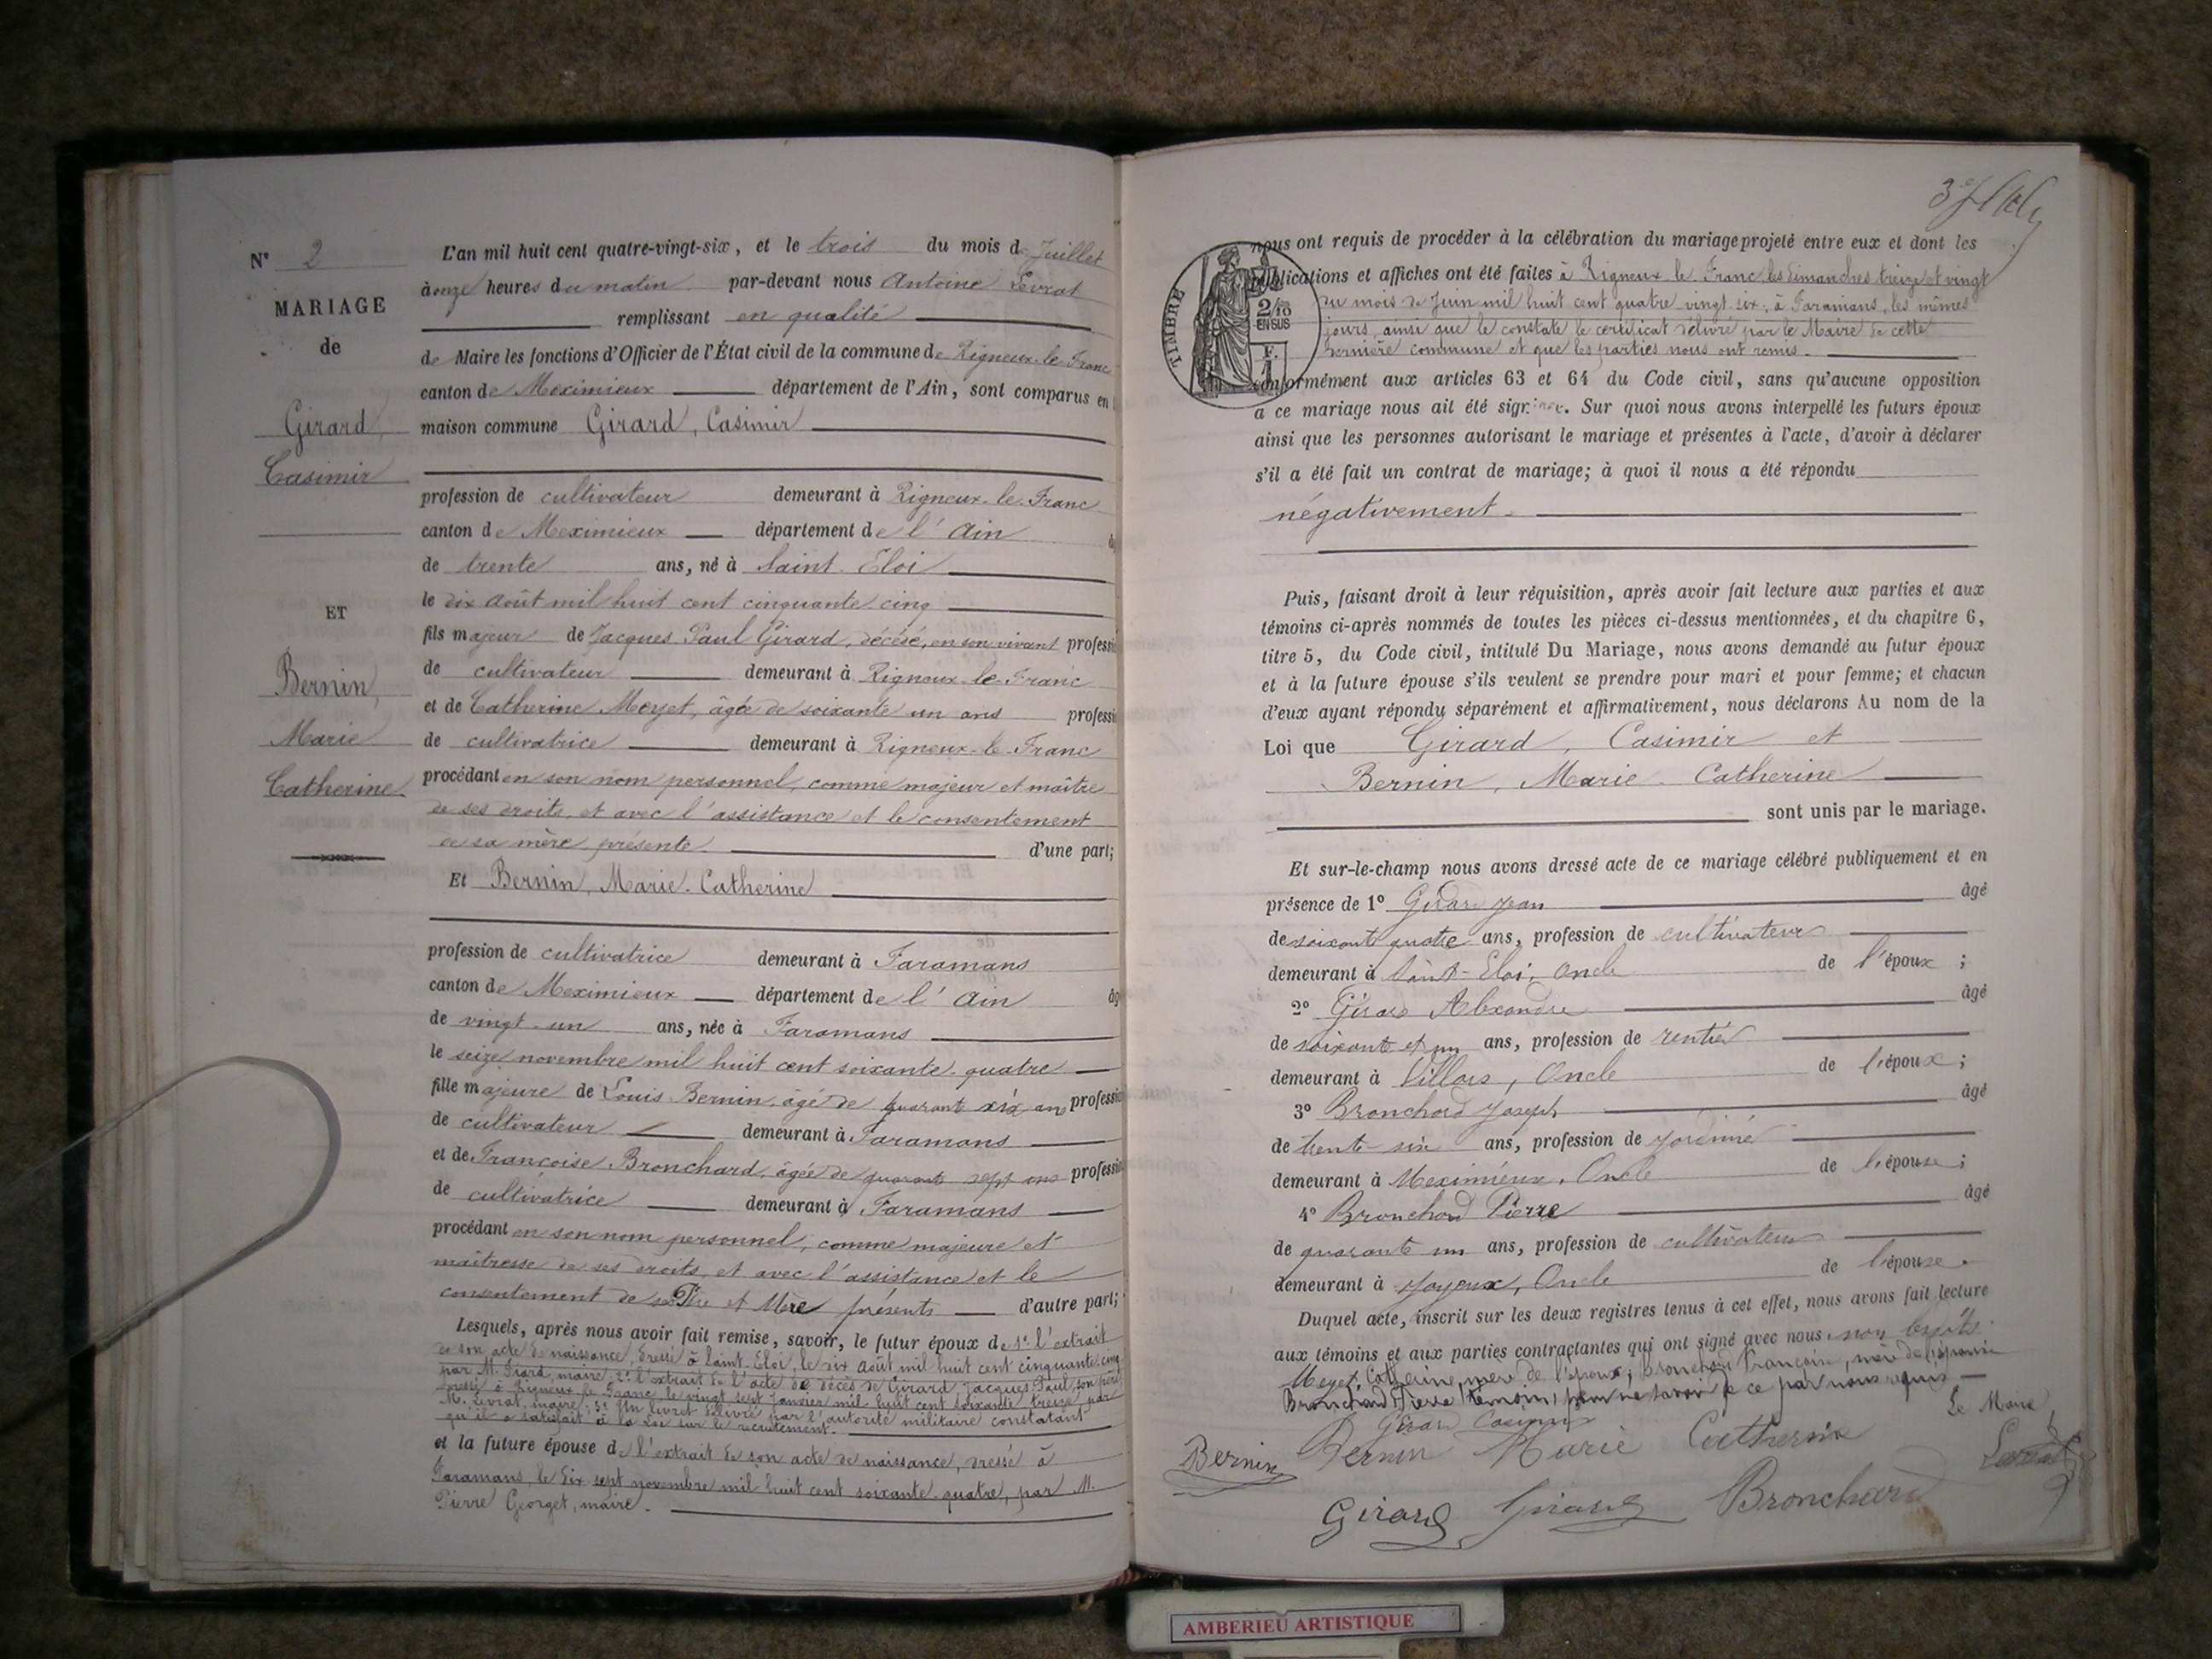 N° 2
MARIAGE
de
Girard,
Casimir
ET
Bernin,
Marie
Catherine
L'an mil huit cent quatre-vingt-six, et le trois du mois de Juillet
à onze heures du matin par-devant nous Antoine Levrat
remplissant en qualité
de Maire les fonctions d'Officier de l'État civil de la commune de Rigneux-le-Franc
canton de Meximieux département de l'Ain, sont comparus en
maison commune Girard, Casimir
profession de cultivateur demeurant à Rigneux-le-Franc
canton de Meximieux département de l'Ain
de trente ans, né à Saint-Eloi
le dix août mil huit cent cinquante-cinq
fils majeur de Jacques Paul Girard, décédé, en son vivant professi
de cultivateur demeurant à Rigneux-le-Franc
et de Catherine Meyet, âgée de soixante un ans professi
de cultivatrice demeurant à Rigneux-le-Franc
procédant en son nom personnel, comme majeur et maître
de ses droits, et avec l'assistance et le consentement
de sa mère présente. d'une part;
Et Bernin, Marie-Catherine
profession de cultivatrice demeurant à Faramans
canton de Meximieux département de l'Ain âg
de vingt-un ans, née à Faramans
le seize novembre mil huit cent soixante-quatre
fille majeure de Louis Bernin, âgé de quarante six ans professio
de cultivateur demeurant à Faramans
et de Françoise Bronchard, âgée de quarante sept ans professio
de cultivatrice demeurant à Faramans
procédant en son nom personnel, comme majeure et
maîtresse de ses droits, et avec l'assistance et le
consentement de ses Père et Mère présents d'autre part;
Lesquels, après nous avoir fait remise, savoir, le futur époux de 1° l'extrait
de son acte de naissance, dressé à Saint-Eloi, le dix août mil huit cent cinquante-cinq
par M. maire; 2° l'extrait de l'acte de décès de Girard, Jacques Paul, son père,
dressé à Rigneux-le-Franc le vingt sept Janvier mil huit cent soixante treize, par
M. Levrat, maire; 3° Un livret délivré par l'autorité militaire constatant
qu'il a satisfait à la loi sur le recrutement.
et la future épouse de l'extrait de son acte de naissance, dressé à
Faramans, le dix sept novembre mil huit cent soixante-quatre, par M.
Pierre Georget, maire.
TIMBRE
2/10
EN SUS
F.
1
nous ont requis de procéder à la célébration du mariage projeté entre eux et dont les
publications et affiches ont été faites à Rigneux-le-Franc, les dimanches treize et vingt
du mois de Juin mil huit cent quatre-vingt-six, à Faramans, les mêmes
jours, ainsi que le constate le certificat délivré par le Maire de cette
dernière commune et que les parties nous ont remis.
conformément aux articles 63 et 64 du Code civil, sans qu'aucune opposition
à ce mariage nous ait été signifiée. Sur quoi nous avons interpellé les futurs époux
ainsi que les personnes autorisant le mariage et présentes à l'acte, d'avoir à déclarer
s'il a été fait un contrat de mariage; à quoi il nous a été répondu
négativement.
Puis, faisant droit à leur réquisition, après avoir fait lecture aux parties et aux
témoins ci-après nommés de toutes les pièces ci-dessus mentionnées, et du chapitre 6,
titre 5, du Code civil, intitulé Du Mariage, nous avons demandé au futur époux
et à la future épouse s'ils veulent se prendre pour mari et pour femme; et chacun
d'eux ayant répondu séparément et affirmativement, nous déclarons Au nom de la
Loi que Girard, Casimir et
Bernin, Marie-Catherine
sont unis par le mariage.
Et sur-le-champ nous avons dressé acte de ce mariage célébré publiquement et en
présence de 1° Girard Jean âgé
de soixante quatre ans, profession de cultivateur
demeurant à Saint-Eloi, Oncle de l'époux;
2° Girard Alexandre âgé
de soixante et un ans, profession de rentier
demeurant à Villars, Oncle de l'époux;
3° Bronchard Joseph âgé
de trente-six ans, profession de jardinié
demeurant à Meximieux, Oncle de l'épouse;
4° Bronchard Pierre âgé
de quarante un ans, profession de cultivateur
demeurant à Joyeux, Oncle de l'épouse.
Duquel acte, inscrit sur les deux registres tenus à cet effet, nous avons fait lecture
aux témoins et aux parties contractantes qui ont signé avec nous, non
Meyet, Catherine, mère de l'époux; Bronchard Françoise, mère de l'épouse
Bronchard Pierre témoin, pour ne savoir de ce par nous requis
Girard Casimir Le Maire,
Bernin Bernin Marie Catherine Levrat
Girard Girard Bronchard
AMBERIEU ARTISTIQUE